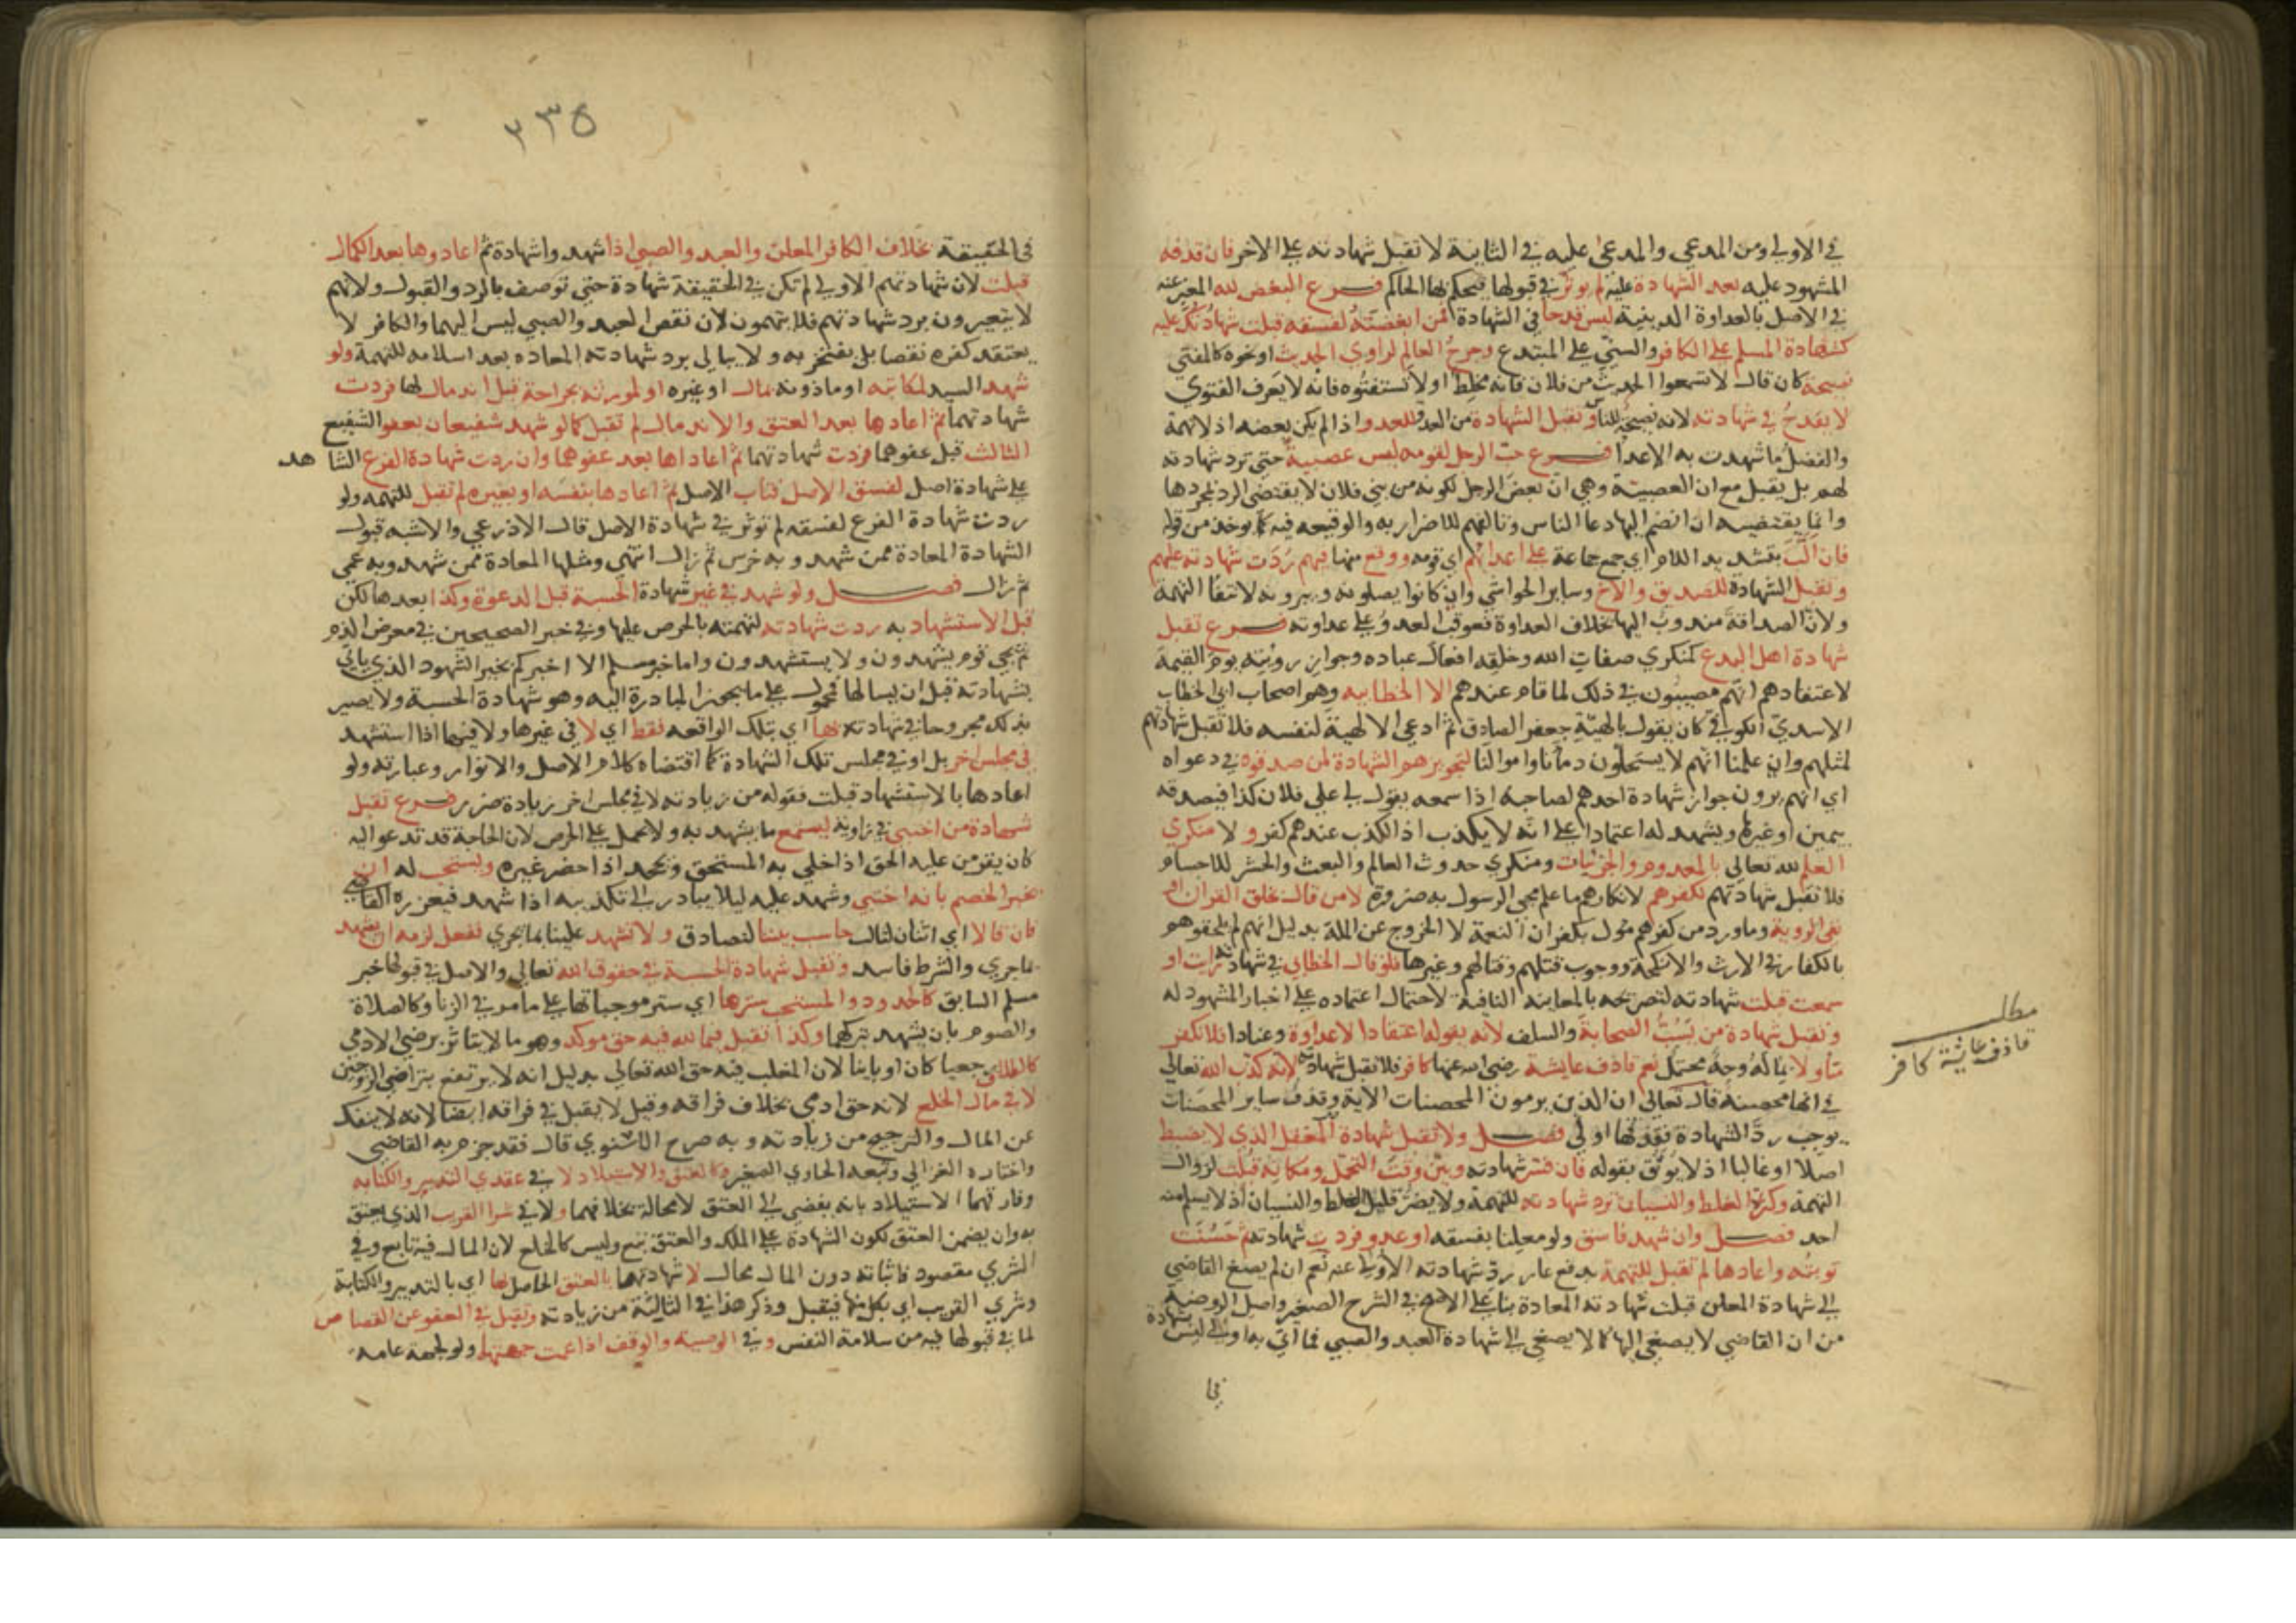 في الاولي ومن المدعي والمدعي عليه في الثانية لا تقبل شهادته علي الاخر فان قذفه
المشهود عليه بعد الشهادة عليه لم يوثر في قبولها فيحكم بها الحاكم فرع البغض لله المعبر عنه
في الاصل بالعداوة الدينية ليس قدحا في الشهادة فمن ابغضته لفسقه قبلت شهادتك عليه
كشهادة المسلم علي الكافر والسني علي المبتدع وجرح العالم لراوي الحديث او نحوه كالمفتي
نصيحة كان قال لا تسمعوا الحديث من فلان فانه مخلط او لا تستفتوه فانه لا يعرف الفتوي
لا يقدح في شهادته لانه نصيحة للناس وتقبل الشهادة من العدو للعدو اذا لم يكن بعضه اذ لا تهمة
والفضل ما شهدت به الاعدا فرع حب الرجل لقومه ليس عصبية حتي ترد شهادته
لهم بل يقبل مع ان العصبية وهي ان يبغض الرجل لكونه من بني فلان لا يقتضي الرد بمجردها
وانما يقتضيه ان انضم اليها دعا الناس وتالفهم للاضرار به والوقيعه فيه كما يوخذ من قوله
فان الب بتشديد اللام اي جمع جماعة علي اعدائهم اي قومه ووقع منها فيهم ردت شهادته عليهم
وتقبل الشهادة للصديق والاخ وساير الحواشي وان كانوا يصلونه ويبرونه لانتفا التهمة
ولان الصداقة مندوب اليها بخلاف العداوة فعوقب العدو علي عداوته فرع تقبل
شهادة اهل البدع كمنكري صفات الله وخلقه افعال عباده وجواز رويته يوم القيمة
لاعتقادهم انهم مصيبون في ذلك لما قام عندهم الا الخطابيه وهم اصحاب ابي الخطاب
الاسدي الكوفي كان يقول بالهية جعفر الصادق ثم ادعي الالهية لنفسه فلا تقبل شهادتهم
لمثلهم وان علمنا انهم لا يستحلون دماءنا واموالنا لتجويزهم الشهادة لمن صدقوه في دعواه
اي انهم يرون جواز شهادة احدهم لصاحبه اذا سمعه يقول لي علي فلان كذا فيصدقه
بيمين او غيرها ويشهد له اعتمادا علي انه لا يكذب اذ الكذب عندهم كفر ولا منكري
العلم لله تعالي بالمعدوم والجزئيات ومنكري حدوث العالم والبعث والحشر للاجسام
فلا تقبل شهادتهم لكفرهم لانكارهم ما علم مجي الرسول به ضرورة لا من قال بخلق القران او
نفي الروية وما ورد من كفرهم مؤول بكفران النعمة لا الخروج عن الملة بدليل انهم لم يلحقوهم
بالكفار في الارث والانكحة ووجوب قتلهم وقتالهم وغيرها فلو قال الخطابي في شهادته رايت او
سمعت قبلت شهادته لتصريحه بالمعاينه النافية لاحتمال اعتماده علي اخبار المشهود له
وتقبل شهادة من يسب الصحابة والسلف لانه يقوله اعتقادا لا عداوة وعنادا فلا نكفر
متاولا بما له وجه محتمل نعم قاذف عايشة رضي الله عنها كافر فلا تقبل شهادته لانه كذب الله تعالي
في انها محصنة قال تعالي ان الذين يرمون المحصنات الاية وقذف ساير المحصنات
يوجب رد الشهادة فقذفها اولي فصل ولا تقبل شهادة المغفل الذي لا يضبط
اصلا او غالبا اذ لا يوثق بقوله فان فسر شهادته وبين وقت التحمل ومكانه قبلت لزوال
التهمة وكثرة الغلط والنسيان ترد شهادته للتهمة ولا يضر قليل الغلط والنسيان اذ لا يسلم منه
احد فصل وان شهد فاسق ولو معلنا بفسقه او عدو فردت شهادته ثم حسنت
توبته واعادها لم تقبل للتهمة بدفع عار رد شهادته الاولي عنه نعم ان لم يصغ القاضي
الي شهادة المعلن قبلت شهادته المعادة بنا علي الاصح في الشرح الصغير واصل الروضة
من ان القاضي لا يصغي اليها كما لا يصغي الي شهادة العبد والصبي فما اتي به اولا ليس شهادة
في
مطلب
قاذف عايشة كافر
٢٣٥
في الحقيقة بخلاف الكافر المعلن والعبد والصبي اذا شهدوا شهادة ثم اعادوها بعد الكمال
قبلت لان شهادتهم الاولي لم تكن في الحقيقة شهادة حتي توصف بالرد والقبول ولانهم
لا يتعيرون برد شهادتهم فلا يتهمون لان نقص العبد والصبي ليس اليهما والكافر لا
يعتقد كفره نقصا بل يفتخر به ولا يبالي برد شهادته المعاده بعد اسلامه للتهمة ولو
شهد السيد لمكاتبه او ماذونه بمال او غيره او لمورثه بجراحة قبل اندمالها فردت
شهادتهما ثم اعادها بعد العتق والاندمال لم تقبل كما لو شهد شفيعان بعفو الشفيع
الثالث قبل عفوهما فردت شهادتهما ثم اعاداها بعد عفوهما وان ردت شهادة الفرع الشاهد
علي شهادة اصل لفسق الاصل فتاب الاصل ثم اعادها بنفسه او بغيره لم تقبل للتهمه ولو
ردت شهادة الفرع لفسقه لم توثر في شهادة الاصل قال الاذرعي والاشبه قبول
الشهادة المعادة ممن شهد وبه خرس ثم زال انتهي ومثلها المعادة ممن شهد وبه عمي
ثم زال فصل ولو شهد في غير شهادة الحسبة قبل الدعوة وكذا بعدها لكن
قبل الاستشهاد به ردت شهادته لتهمته بالحرص عليها وفي خبر الصحيحين في معرض الذم
ثم يجي قوم يشهدون ولا يستشهدون واما خبر مسلم الا اخبركم بخير الشهود الذي ياتي
بشهادته قبل ان يسالها فمحمول علي ما يجوز المبادرة اليه وهو شهادة الحسبة ولا يصير
بذلك مجروحا في شهادته بها اي بتلك الواقعه فقط اي لا في غيرها ولا فيها اذا استشهد
في مجلس اخر بل او في مجلس تلك الشهادة كما اقتضاه كلام الاصل والانوار وعبارته ولو
اعادها بالاستشهاد قبلت فقوله من زيادته لا في مجلس اخر زيادة ضرر فرع تقبل
شهادة من اختبي في زاوية ليسمع ما يشهد به ولا تحمل علي الحرص لان الحاجة قد تدعو اليه
كان يقر من عليه الحق اذا خلي به المستحق ويجحد اذا حضر غيره ويستحب له ان
يخبر الخصم بانه اختبي وشهد عليه ليلا يبادر الي تكذيبه اذا شهد فيعزره القاضي
فان قالا اي اثنان لثالث حاسب بيننا لنتصادق ولا تشهد علينا بما يجري ففعل لزمه ان يشهد
بما جري والشرط فاسد وتقبل شهادة الحسبة في حقوق الله تعالي والاصل في قبولها خبر
مسلم السابق كالحدود والمستحب سترها اي ستر موجباتها علي ما مر في الزنا وكالصلاة
والصوم بان يشهد بتركهما وكذا تقبل فيما لله فيه حق موكد وهو ما لا يتاثر برضي الادمي
كالطلاق رجعيا كان او باينا لان المغلب فيه حق الله تعالي بدليل انه لا يرتفع بتراضي الزوجين
لا في مال الخلع لانه حق ادمي بخلاف فراقه وقيل لا يقبل في فراقه ايضا لانه لا ينفك
عن المال والترجيح من زيادته وبه صرح الاسنوي قال فقد جزم به القاضي
واختاره الغزالي وتبعه الحاوي الصغير وكالعتق والاستيلاد لا في عقدي التدبير والكتابه
وفارقهما الاستيلاد بانه يفضي الي العتق لا محالة بخلافهما ولا في شرا القريب الذي يعتق
به وان يضمن العتق لكون الشهادة علي الملك والعتق تبع وليس كالخلع لان المال فيه تابع وفي
الشري مقصود فاثباته دون المال محال لا شهادتهما بالعتق الحاصل بها اي بالتدبير والكتابة
وشري القريب اي بكل منها فيقبل وذكر هذا في الثالثة من زيادته وتقبل في العفو عن القصاص
لما في قبولها فيه من سلامة النفس وفي الوصية والوقف اذا عمت جهتهما ولو لجهة عامه